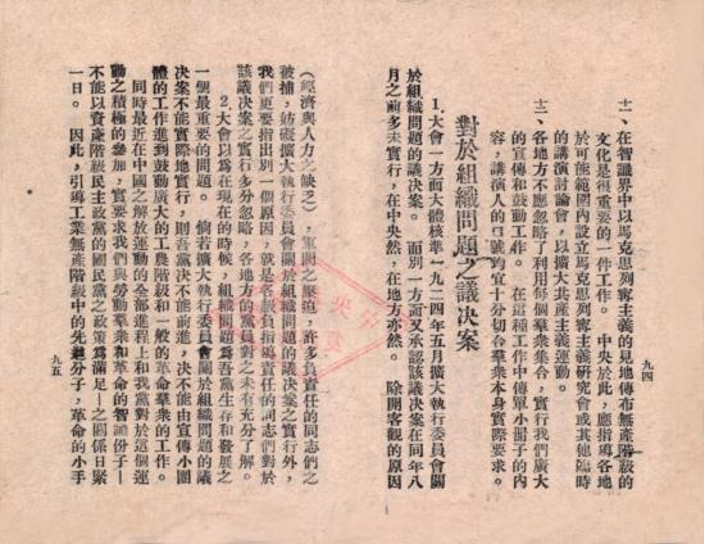 九四
十一、在智識界中以馬克思列寧主義的見地傳布無產階級的
文化是很重要的一件工作。 中央於此，應指導各地
於可能範圍內設立馬克思列寧主義研究會或其他臨時
的講演討論會，以擴大共產主義運動。
十二、各地方不應忽略了利用每個羣衆集合，實行我們廣大
的宣傳和鼓動工作。 在這種工作中傳單小冊子的內
容，講演人的口號均宜十分切合羣衆本身實際要求。
對於組織問題之議决案
1.大會一方面大體核準一九二四年五月擴大執行委員會關
於組織問題的議决案。 而別一方面又承認該議决案在同年八
月之前多未實行，在中央然，在地方亦然。 除開客觀的原因
（經濟與人力之缺乏），軍閥之壓迫，許多負責任的同志們之
被捕，妨礙擴大執行委員會關於組織問題的議决案之實行外，
我們更要指出別一個原因，就是各級負指導責任的同志們對於
該議决案之實行多分忽略，各地方的黨員對之未有充分了解。
2.大會以爲在現在的時候，組織問題爲吾黨生存和發展之
一個最重要的問題。 倘若擴大執行委員會關於組織問題的議
决案不能實際地實行，則吾黨决不能前進，决不能由宣傳小團
體的工作進到鼓動廣大的工農階級和一般的革命羣衆的工作。
同時最近在中國之解放運動的全部進程上和我黨對於這個運
動之積極的參加，實要求我們與勞動羣衆和革命的智識份子—
不能以資產階級民主政黨的國民黨之政策爲滿足—之關係日緊
一日。 因此，引導工業無產階級中的先進分子，革命的小手
九五